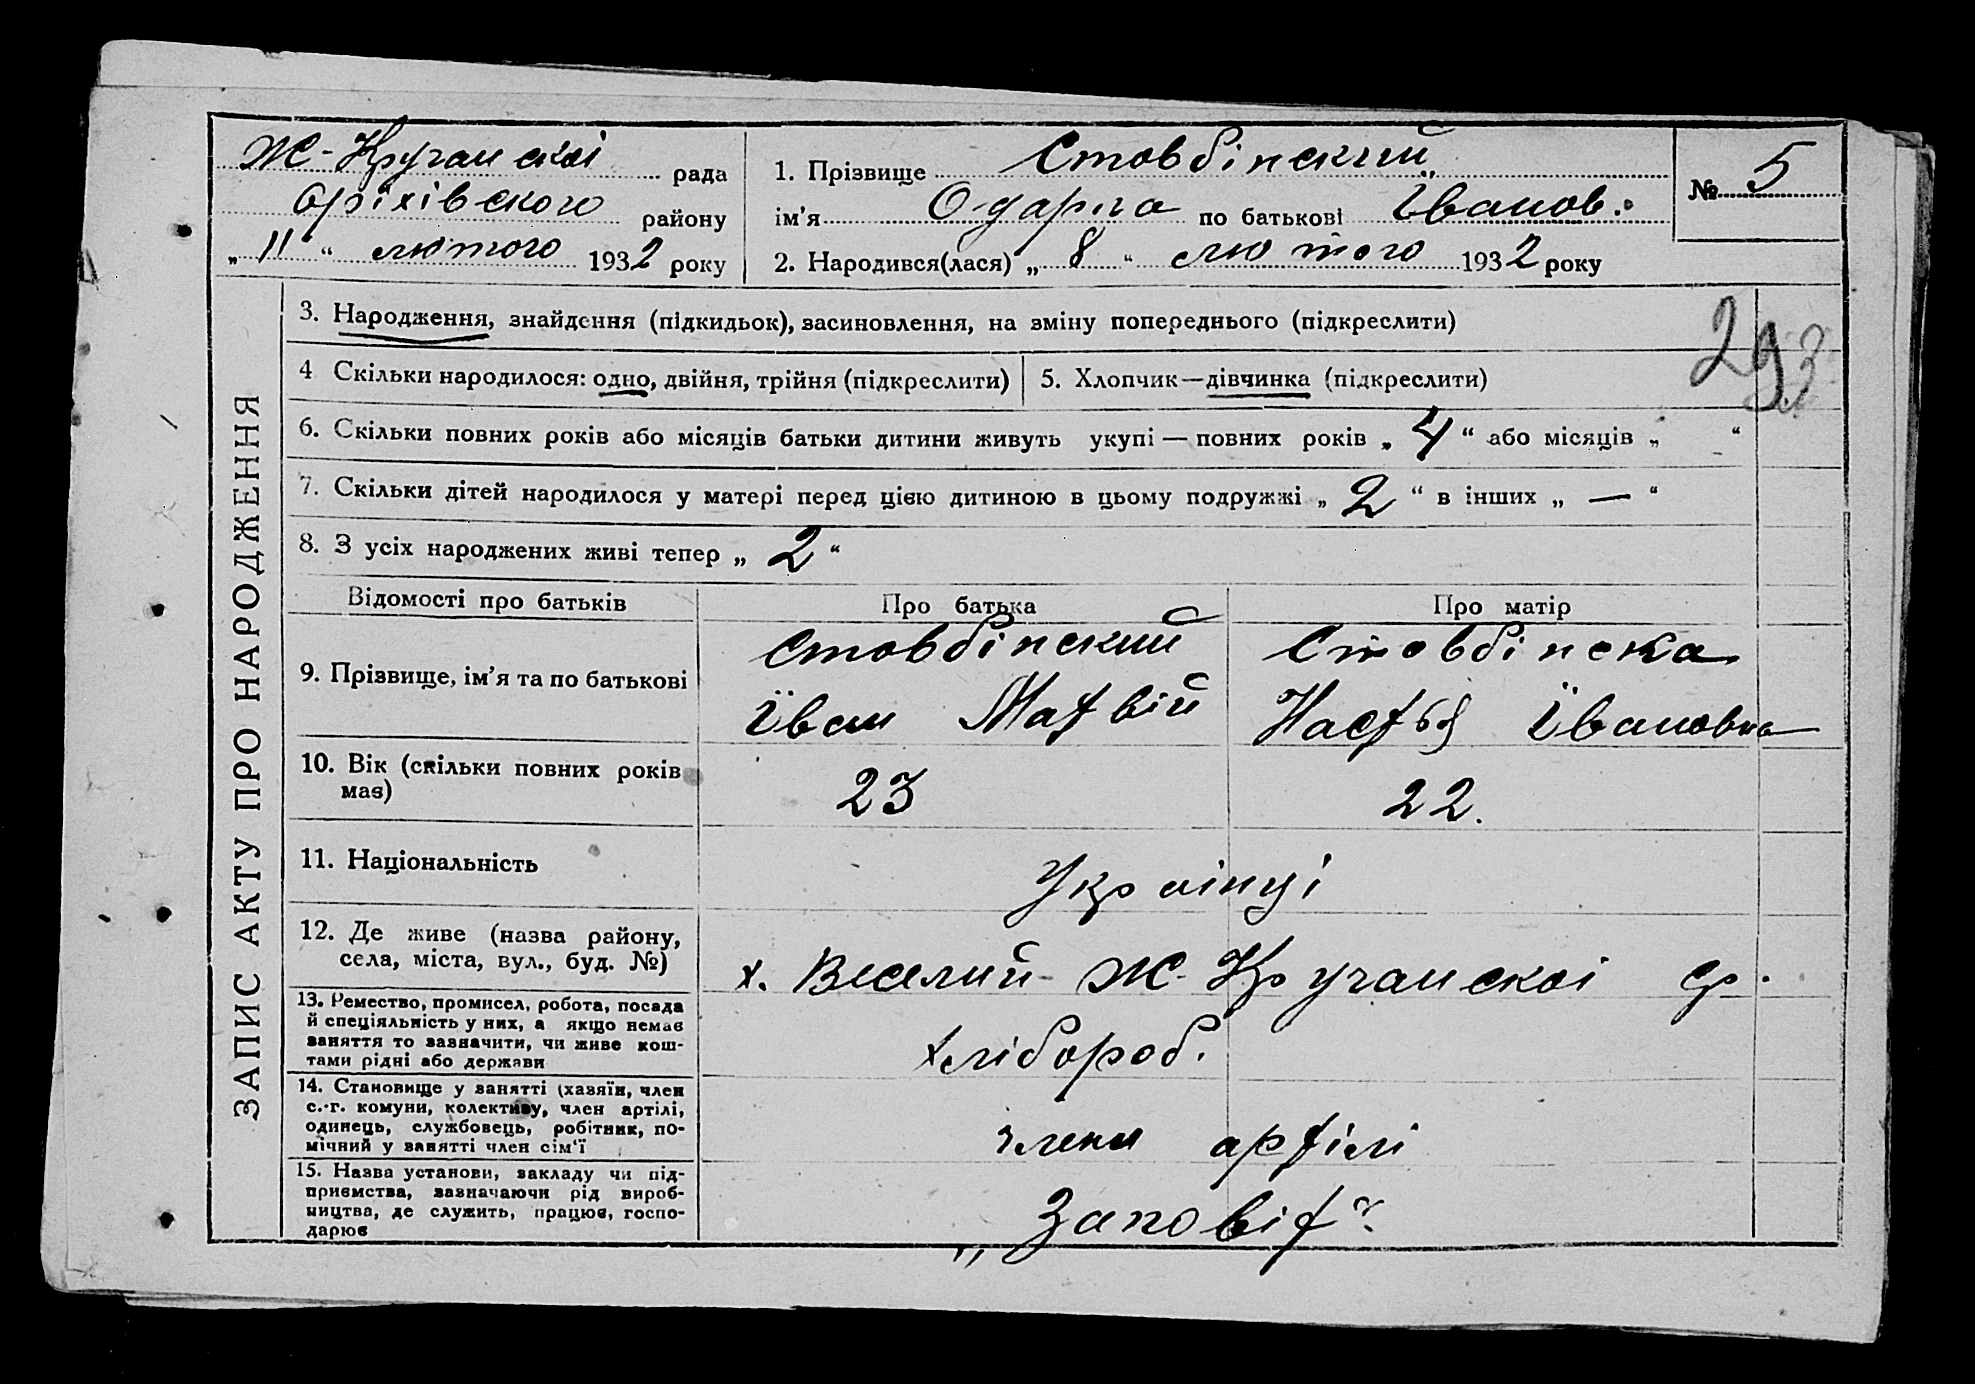 Ж-Кручанскоі рада
Оріхівского району
„ 11 “ лютого 1932 року
1. Прізвище Стовбінский
ім’я Одарка по батькові Іванов.
2. Народився(лася) „ 8 “ лютого 1932 року
№ 5
293
ЗАПИС АКТУ ПРО НАРОДЖЕННЯ
3. Народження, знайдення (підкидьок), засиновлення, на зміну попереднього (підкреслити)
4 Скільки народилося: одно, двійня, трійня (підкреслити)
5. Хлопчик—дівчинка (підкреслити)
6. Скільки повних років або місяців батьки дитини живуть укупі — повних років „ 4 “ або місяців „ “
7. Скільки дітей народилося у матері перед цією дитиною в цьому подружжі „ 2 “ в інших „ — “
8. З усіх народжених живі тепер „ 2 “
Відомості про батьків
Про батька
Про матір
9. Прізвище, ім’я та по батькові
Стовбінский
Їван Матвій
Стовбінска
Настья Ївановна
10. Вік (скільки повних років
має)
23
22.
11. Національність
Українці
12. Де живе (назва району,
села, міста, вул., буд. №)
х. Веселий Ж-Кручанскоі ср.
13. Ремество, промисел, робота, посада
й спеціяльність у них, а якщо немає
заняття то зазначити, чи живе кош-
тами рідні або держави
хлібороб.
14. Становище у занятті (хазяїн, член
с.-г. комуни, колективу, член артілі,
одинець, службовець, робітник, по-
мічний у занятті член сім‘ї
члени артілі
15. Назва установи, закладу чи під-
приємства, зазначаючи рід вироб-
ництва, де служить, працює, госпо-
дарює
„Заповіт“